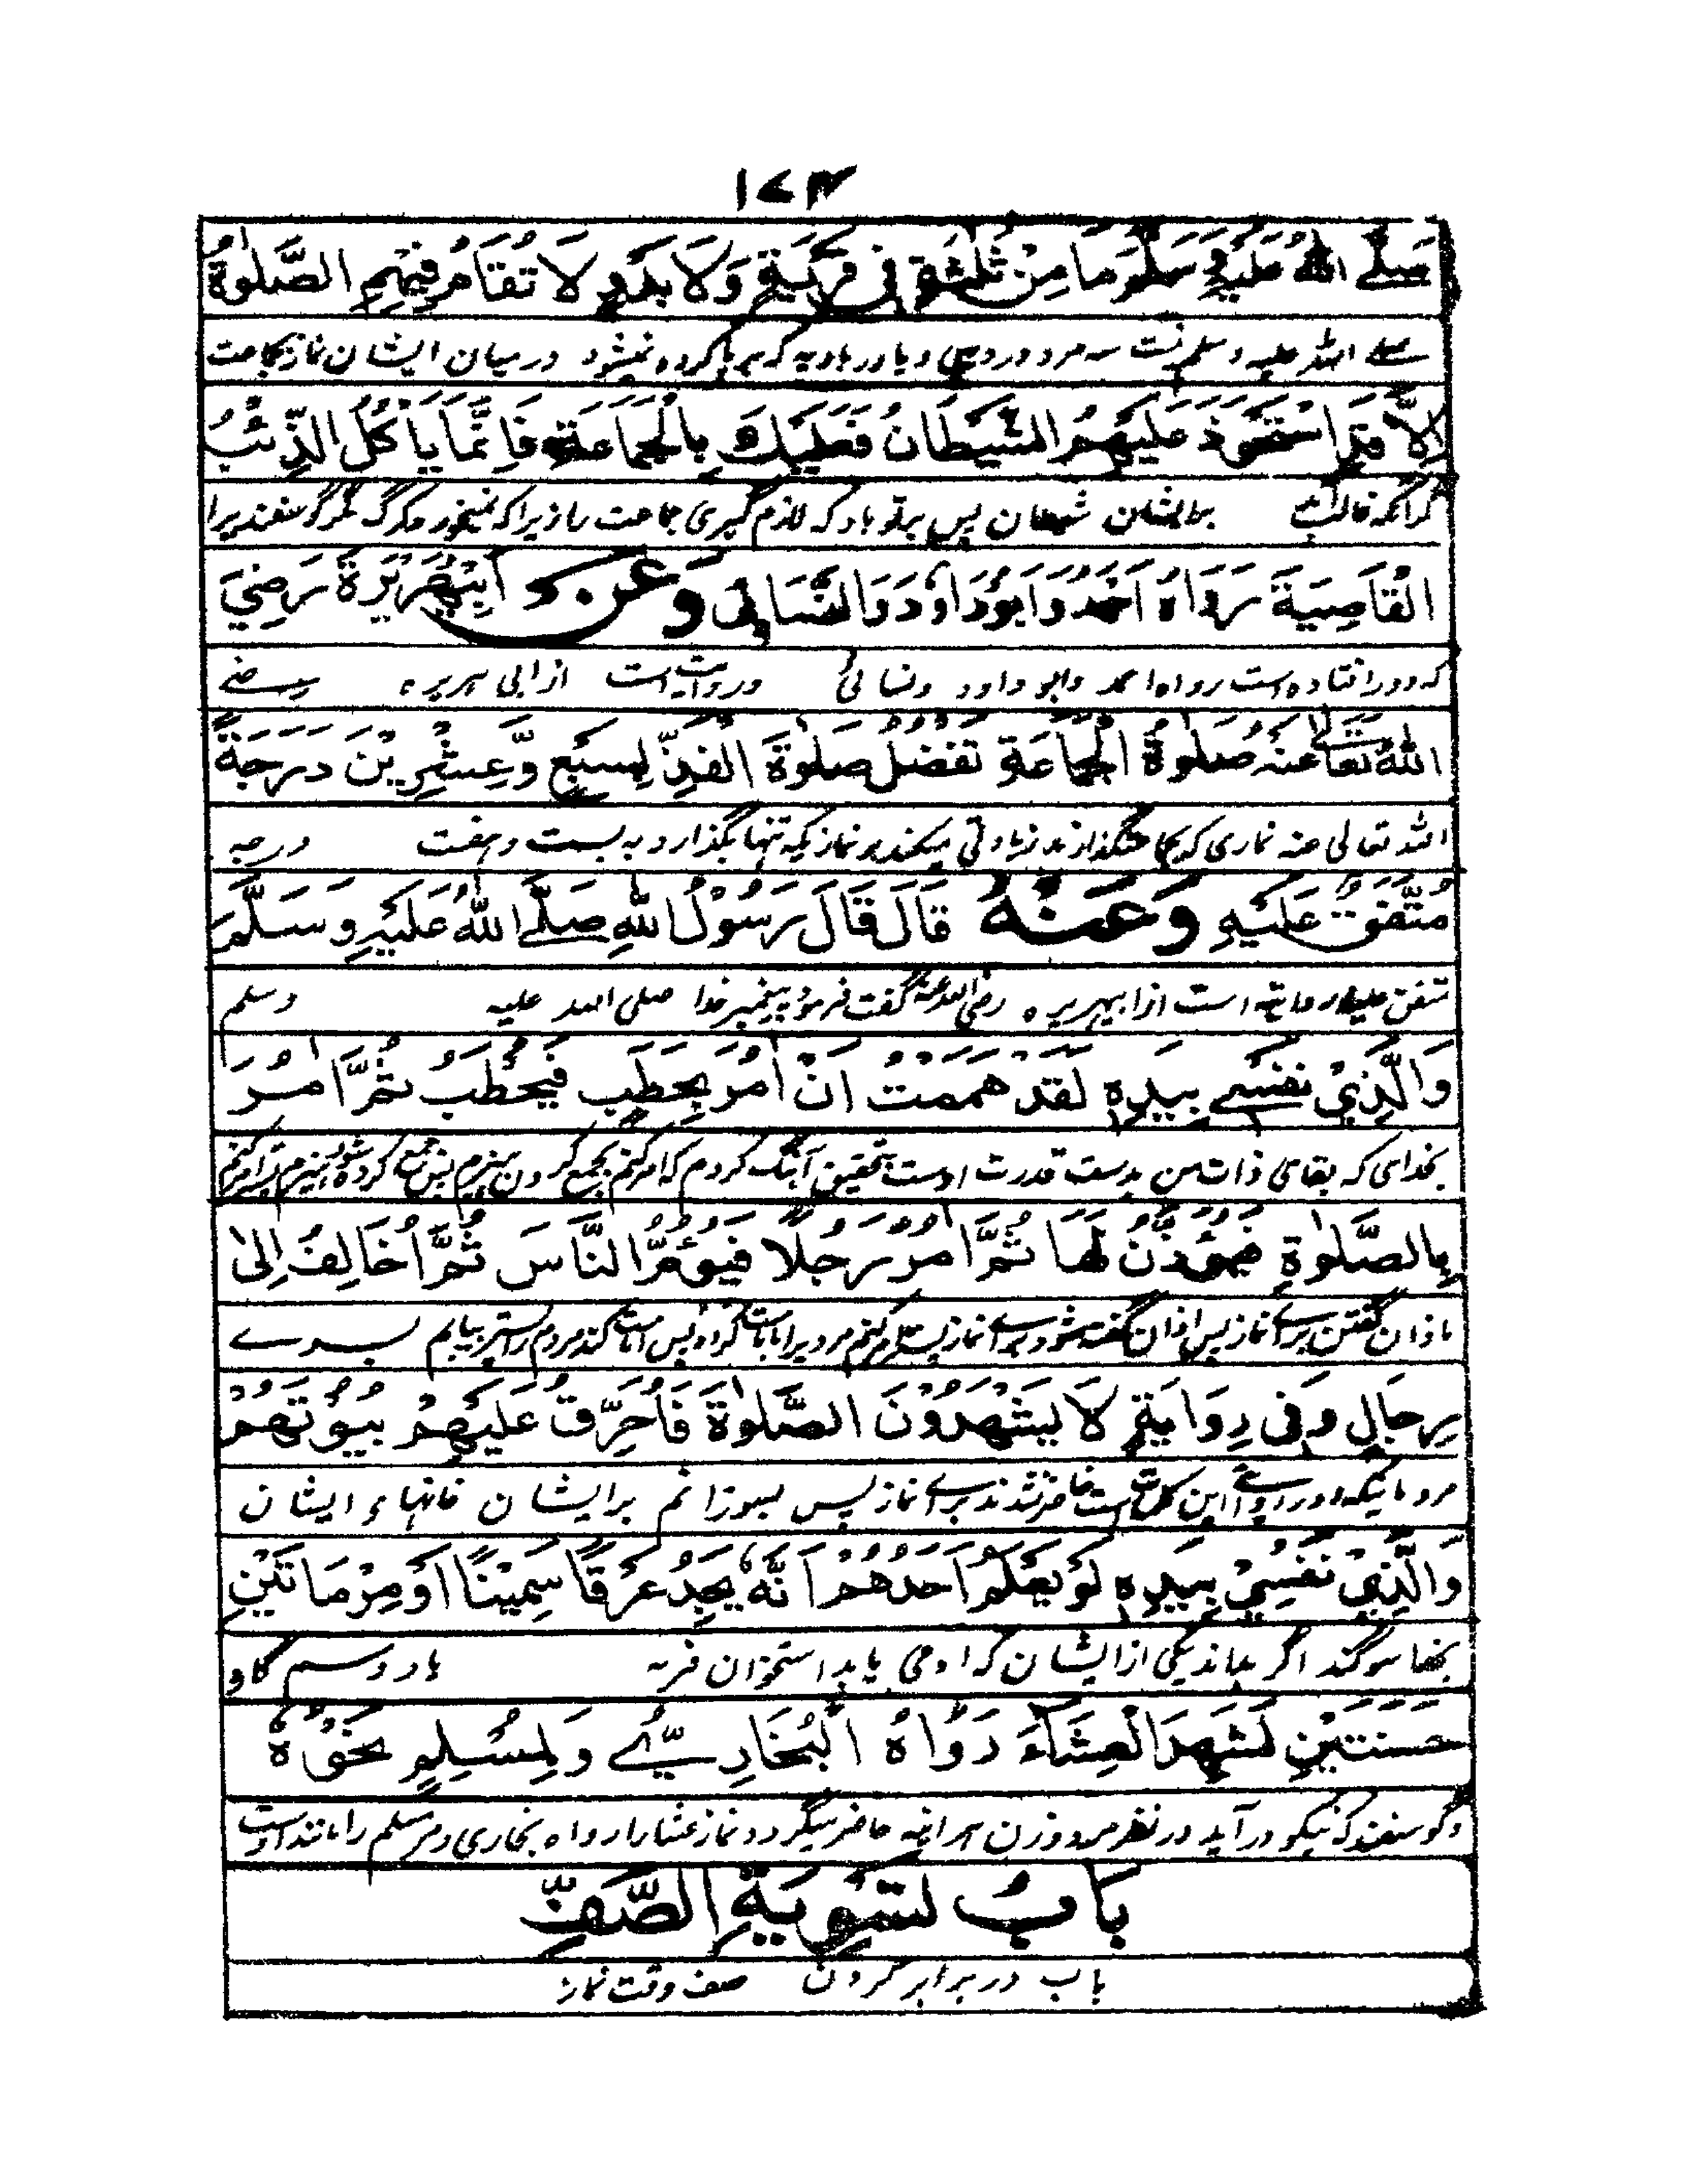 ۱۷۴
صَلَّے اللهُ عَلَيْهِ وَسَلَّمَ مَا مِنْ ثَلٰثَةٍ فِي قَرْيَةٍ وَلَا بَدْوٍ لَا تُقَامُ فِيْهِمِ الصَّلٰوةُ
صلے الله علیه وسلم نیست سه مرد در دیهی و یا در بادیه که برپا کرده نمیشود درمیان ایشان نماز بجماعت
اِلَّا قَدِ اسْتَحْوَذَ عَلَيْهِمُ الشَّيْطَانُ فَعَلَيْكَ بِالْجَمَاعَةِ فَاِنَّمَا يَاْكُلُ الذِّئْبُ
مگر آنکه غالب برایشان شیطان پس بر تو باد که لازم گیری جماعت را زیرا که نمیخورد گرگ مگر گوسفندیرا
الْقَاصِيَةَ رَوَاهُ اَحْمَدُ وَاَبُوْدَاوٗدَ وَالنَّسَائِي وَعَنْ اَبِيْهُرَيْرَةَ رَضِيَ
که دور افتاده است رواه احمد وابو داود ونسائی و روایت است از ابی هریره رضے
اللهُ تَعَالٰى عَنْهُ صَلٰوةُ الْجَمَاعَةِ تَفْضُلُ صَلٰوةَ الْفَذِّ بِسَبْعٍ وَّعِشْرِيْنَ دَرَجَةً
الله تعالی عنه نمازی که بجماعت گذارند زیادتی میکند بر نمازیکه تنها بگذارد به بست وهفت درجه
مُتَّفَقٌ عَلَيْهِ وَعَنْهُ قَالَ قَالَ رَسُوْلُ اللهِ صَلَّے اللهُ عَلَيْهِ وَسَلَّمَ
متفق علیه روایة است از ابیهریره رضی الله عنه گفت فرمود پیغمبر خدا صلی الله علیه وسلم
وَالَّذِيْ نَفْسِي بِيَدِهٖ لَقَدْ هَمَمْتُ اَنْ اٰمُرَ بِحَطَبٍ فَيُحْطَبُ ثُمَّ اٰمُرَ
بخدای که بقای ذات من بدست قدرت اوست بتحقیق آهنگ کردم که امر کنم بجمع کردن هیزم پس جمع کرده شود هیزم پستر امر کنم
بِالصَّلٰوةِ فَيُؤَذَّنُ لَهَا ثُمَّ اٰمُرَ رَجُلًا فَيَؤُمُّ النَّاسَ ثُمَّ اُخَالِفُ اِلٰى
باذان گفتن برای نماز پس اذان گفته شود برای نماز پستر امر کنم مردیرا بامامت پس امامت کند مردم را پستر بیایم بسوے
رِجَالٍ وَفِي رِوَايَةٍ لَا يَشْهَدُوْنَ الصَّلٰوةَ فَاُحَرِّقُ عَلَيْهِمْ بُيُوْتَهُمْ
مردمانیکه و در روایتے این است حاضر نشدند برای نماز پس بسوزانم برایشان خانهاء ایشان
وَالَّذِيْ نَفْسِيْ بِيَدِهٖ لَوْ يَعْلَمُ اَحَدُهُمْ اَنَّهٗ يَجِدُ عَرْقًا سَمِيْنًا اَوْ مِرْمَاتَيْنِ
بخدا سوگند اگر بداند یکی از ایشان که او می یابد استخوان فربه یا دو سم گاو
حَسَنَتَيْنِ لَشَهِدَ الْعِشَاءَ رَوَاهُ الْبُخَارِيُّ وَلِمُسْلِمٍ نَحْوُهٗ
وگوسفند که نیکو در آید در نظر مرد وزن هرآینه حاضر میگردد نماز عشا را رواه بخاری ومر مسلم را مانند اوست
بَابُ تَسْوِيَةِ الصَّفِّ
باب در برابر کردن صف وقت نماز